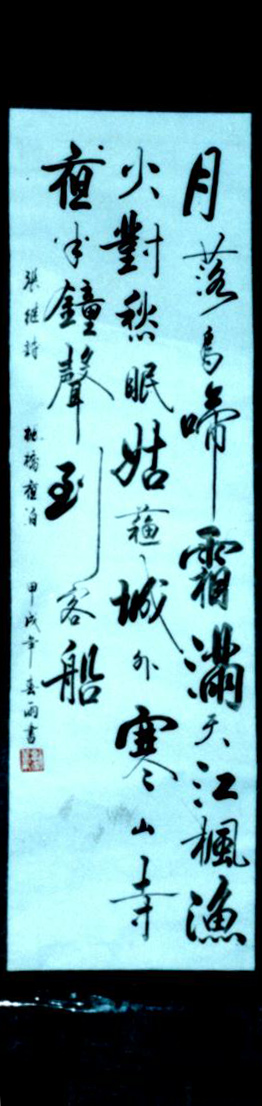 月落烏啼霜滿天江楓漁
火對愁眠姑蘇城外寒山寺
夜半鐘聲到客船
張继詩 楓橋夜泊 甲戌年春雨書